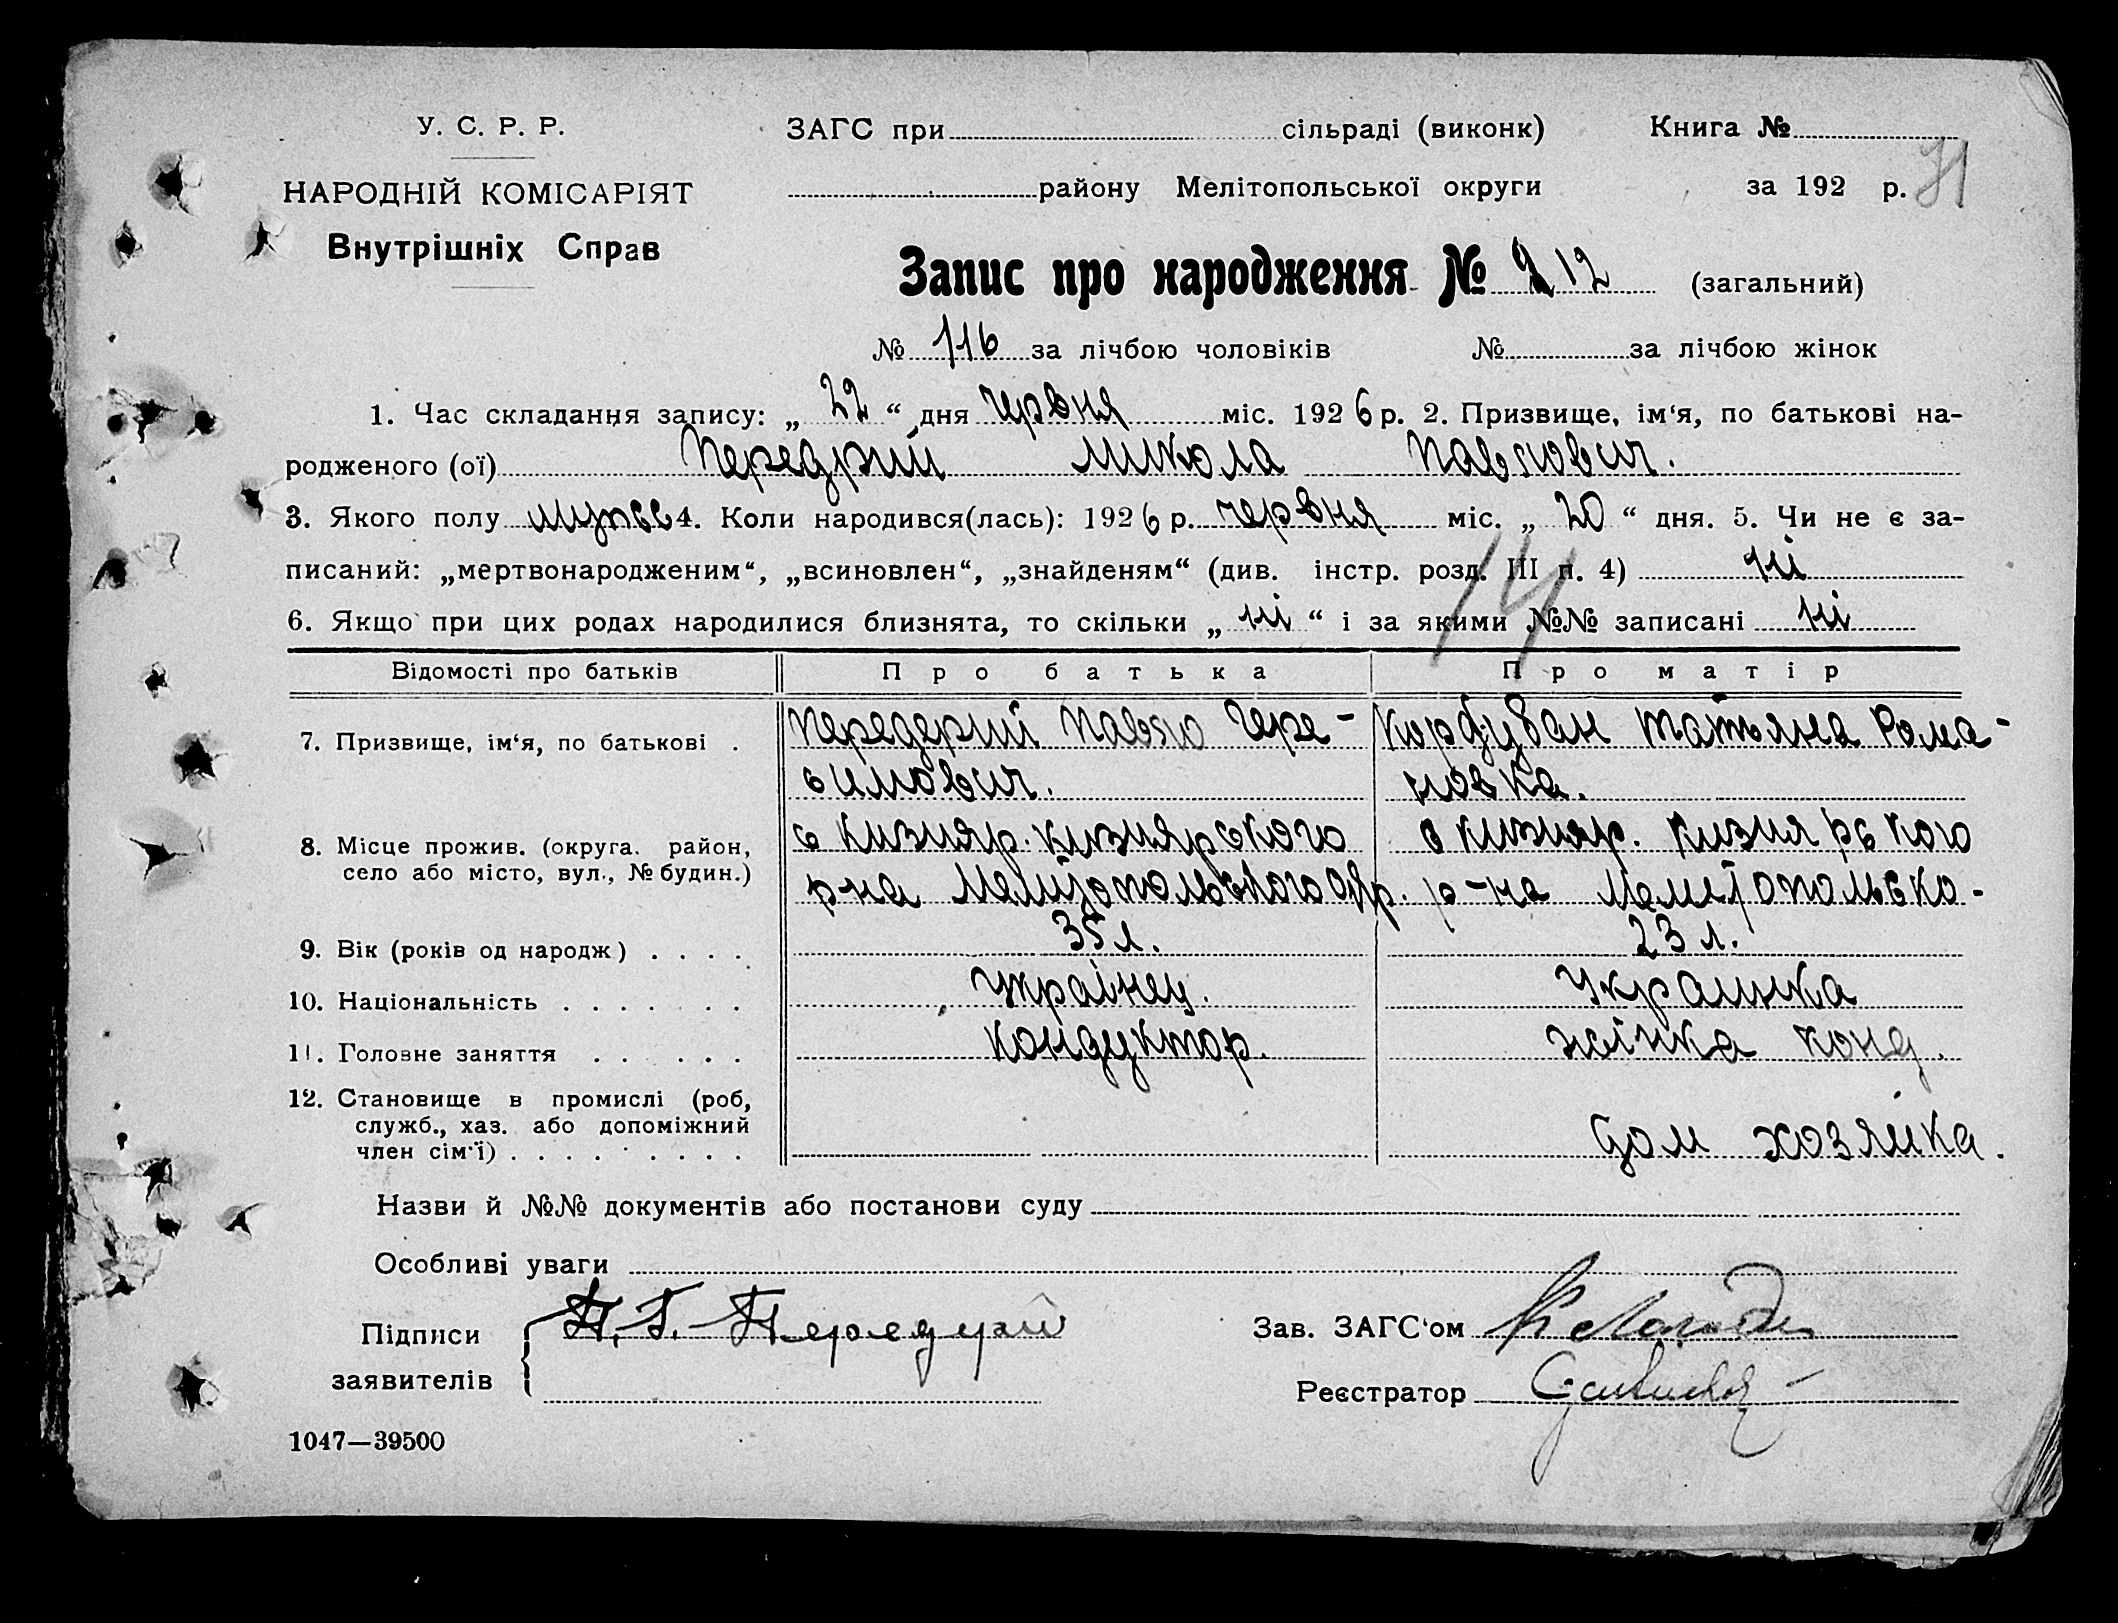 У. С. Р. Р.
НАРОДНІЙ КОМІСАРІЯТ
Внутрішніх Справ
ЗАГС при сільраді (виконк) Книга №
району Мелітопольської округи за 192 р. 71
Запис про народження № 212 (загальний)
№ 116 за лічбою чоловіків № за лічбою жінок
1. Час складання запису: „ 22 “ дня червня міс. 1926 р. 2. Призвище, ім‘я, по батькові на-
родженого (ої) Передрий Микола Павлович.
3. Якого полу мужес 4. Коли народився(лась): 1926 р. червня міс. „ 20 “ дня. 5. Чи не є за-
писаний: „мертвонародженим“, „всиновлен“, „знайденям“ (див. інстр. розд. III п. 4) ні
14
6. Якщо при цих родах народилися близнята, то скільки „ ні “ і за якими №№ записані ні
Відомості про батьків Про батька Про матір
7. Призвище, ім‘я, по батькові . Передерий Павло Гера- Корбуван Татьяна Рома-
симович. новка.
8. Місце прожив. (округа. район, с Кизияр. Кизиярского с Кизияр. Кизиярского
село або місто, вул., № будин.) р-на Мелитопольского окр. р-на Мелитопольско-
9. Вік (років од народж) . . . . 35 л. 23 л.
10. Національність . . . . . . . Українец. Украинка
11. Головне заняття . . . . . . Кондуктор. жінка конд.
12. Становище в промислі (роб,
служб., хаз. або допоміжний дом хозяйка.
член сім‘ї) . . . . . . . . .
Назви й №№ документів або постанови суду
Особливі уваги
Підписи П. Г. Передрий Зав. ЗАГС‘ом
заявителів Реєстратор
1047—39500